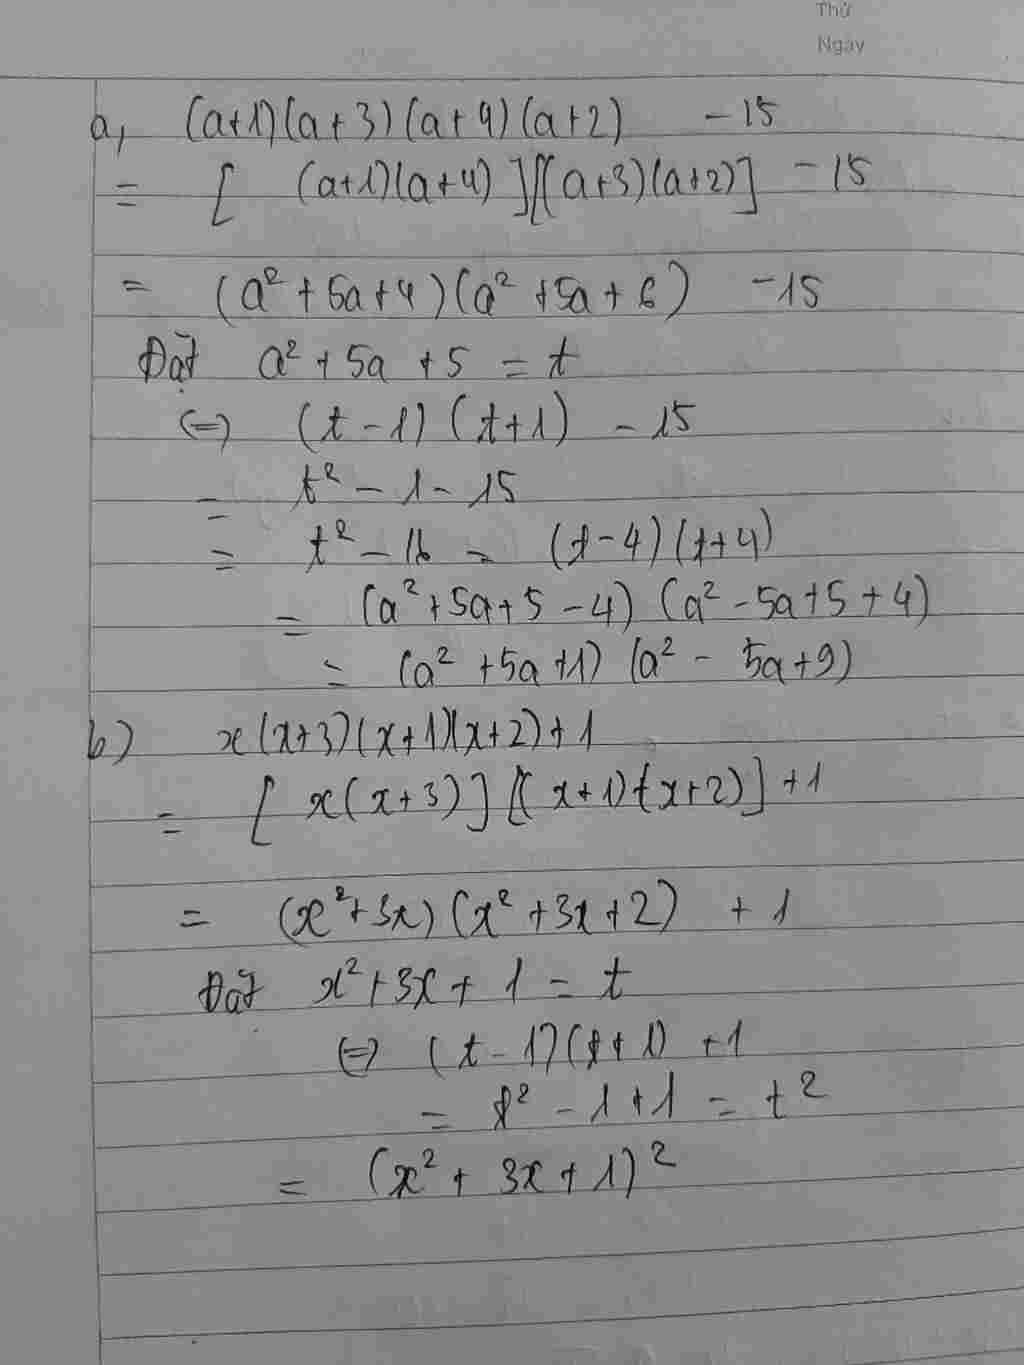 Thứ
Ngày
a, (a+1)(a+3)(a+4)(a+2) -15
= [ (a+1)(a+4) ][(a+3)(a+2)] -15
= (a² + 5a+4)(a² +5a+6) -15
Đặt a² + 5a + 5 = t
(=) (t-1) (t+1) -15
= t² - 1 - 15
= t² - 16 = (t-4)(t+4)
= (a²+5a+5-4) (a² -5a+5+4)
= (a² +5a+1) (a² - 5a+9)
b) x(x+3)(x+1)(x+2)+1
= [ x(x+3)] [(x+1)(x+2)] +1
= (x²+3x)(x² +3x+2) + 1
Đặt x²+3x+1 = t
(=) (t-1)(t+1) +1
= t² -1+1 = t²
= (x² + 3x+1)²